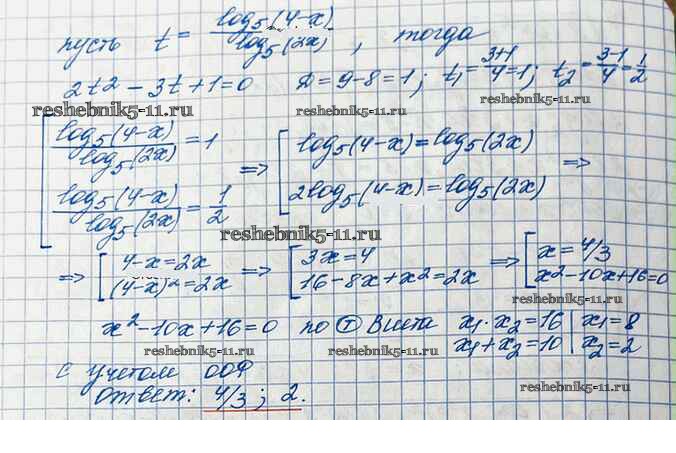 пусть t = log₅(4-x) / log₅(2x), тогда
2t² - 3t + 1 = 0 D = 9 - 8 = 1; t₁ = 3+1/4 = 1; t₂ = 3-1/4 = 1/2
reshebnik5-11.ru reshebnik5-11.ru reshebnik5-11.ru
[ log₅(4-x) / log₅(2x) = 1 => [ log₅(4-x) = log₅(2x) =>
log₅(4-x) / log₅(2x) = 1/2 2log₅(4-x) = log₅(2x)
reshebnik5-11.ru
=> [ 4-x = 2x => [ 3x = 4 => [ x = 4/3
(4-x)² = 2x 16 - 8x + x² = 2x x² - 10x + 16 = 0
reshebnik5-11.ru
x² - 10x + 16 = 0 по Ⓣ Виета x₁·x₂ = 16 | x₁ = 8
x₁ + x₂ = 10 | x₂ = 2
reshebnik5-11.ru reshebnik5-11.ru
с учетом ООФ
reshebnik5-11.ru reshebnik5-11.ru
ответ: 4/3; 2.